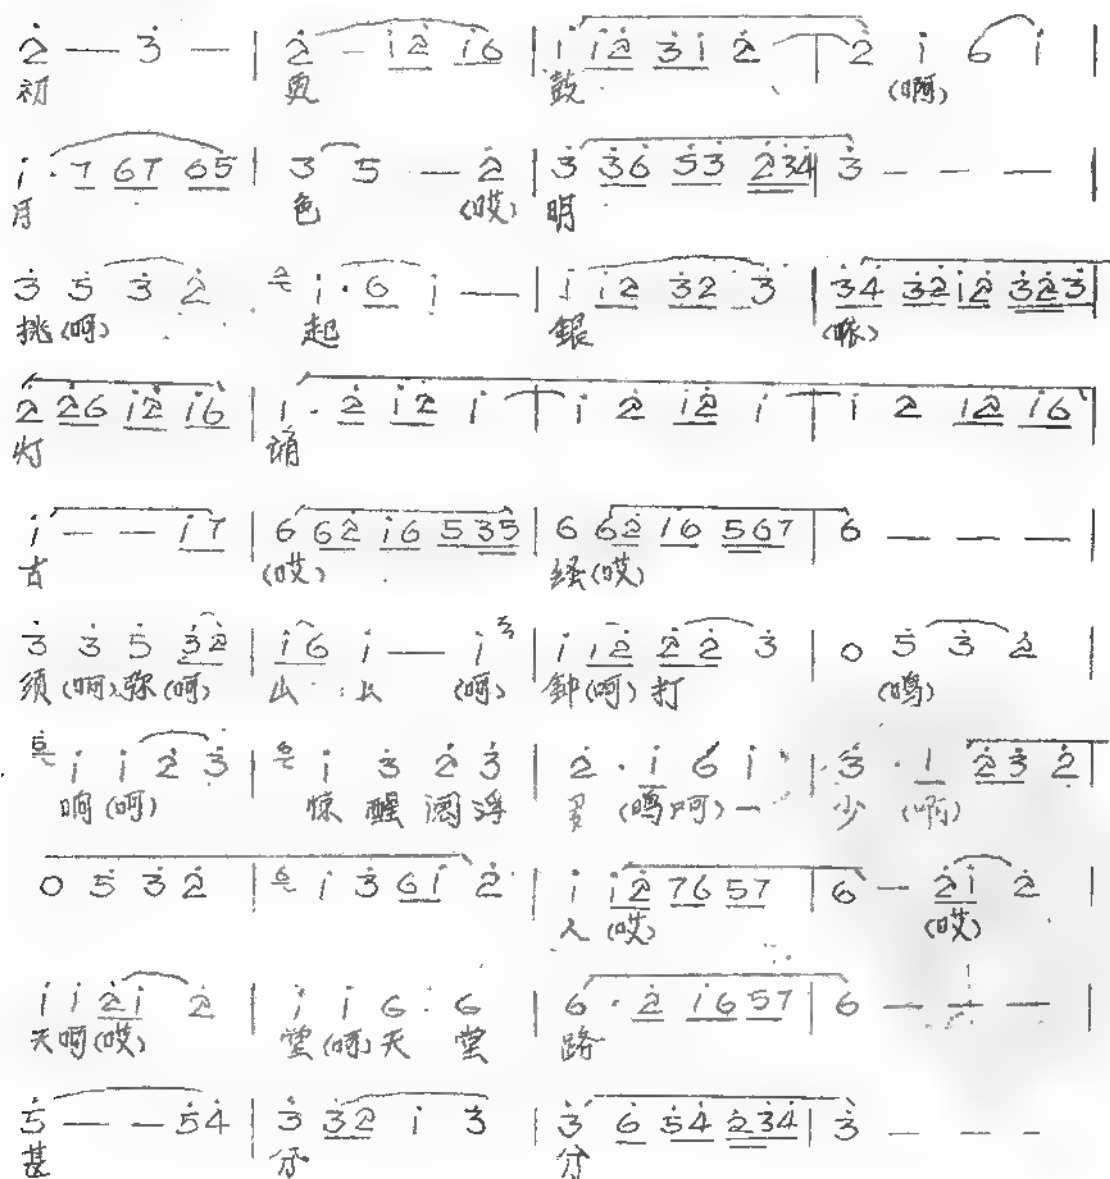 2̇ — 3̇ — | 2̇ — 1̇2̇ 1̇6 | 1̇ 1̇2̇ 3̇1̇ 2̇ | 2̇ 1̇ 6 1̇ |
初 更 鼓 (啊)
1̇ · 7 67 65 | 3 5 — 2̇ | 3̇ 3̇6̇ 5̇3̇ 2̇3̇4̇ | 3̇ — — — |
月 色 (哎) 明
3̇ 5̇ 3̇ 2̇ 1̇ · 6 1̇ — | 1̇ 1̇2̇ 3̇2̇ 3̇ | 3̇4̇ 3̇2̇ 1̇2̇ 3̇2̇3̇ |
挑 (啊) 起 銀
2̇ 2̇6 1̇2̇ 1̇6 | 1̇ · 2̇ 1̇2̇ 1̇ | 1̇ 2̇ 1̇2̇ 1̇ | 1̇ 2̇ 1̇2̇ 1̇6 |
灯 诵
1̇ — — 1̇7 | 6 62̇ 1̇6 535 | 6 62̇ 1̇6 567 | 6 — — — |
古 (哎) 经 (哎)
3̇ 3̇ 5̇ 3̇2̇ | 1̇6 1̇ — 1̇ | 1̇ 1̇2̇ 2̇ 2̇ 3̇ | 0 5̇ 3̇ 2̇ |
须 (啊) 弥 (啊) 山 上 (啊) 钟 (啊) 打 (鸣)
1̇ 1̇ 2̇ 3̇ | 1̇ 3̇ 2̇ 3̇ | 2̇ · 1̇ 6 1̇ | 3̇ · 1̇ 2̇3̇ 2̇ |
响 (啊) 惊 醒 阎 浮 多 (鸣 啊) 少 (啊)
0 5̇ 3̇ 2̇ | 1̇ 3̇ 61̇ 2̇ | 1̇ 1̇2̇ 76 57 | 6 — 2̇1̇ 2̇ |
人 (哎) (哎)
1̇ 1̇ 2̇1̇ 2̇ | 1̇ 1̇ 6 · 6 | 6 · 2̇ 1̇6 57 | 6 — — — |
天 啊 (哎) 堂 (啊) 天 堂 路
5̇ — — 5̇4̇ | 3̇ 3̇2̇ 1̇ 3̇ | 3̇ 6̇ 5̇4̇ 2̇3̇4̇ | 3̇ — — — |
甚 分 分